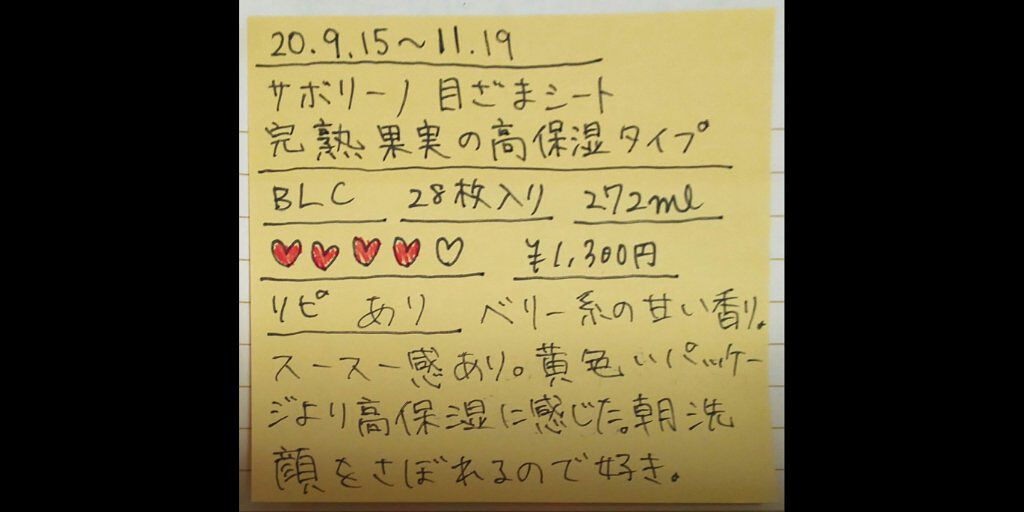 20.9.15〜11.19
サボリーノ 目ざまシート
完熟果実の高保湿タイプ
BLC 28枚入り 272ml
♥♥♥♥♡ ¥1,300円
リピ あり ベリー系の甘い香り。
スースー感あり。黄色いパッケー
ジより高保湿に感じた。朝洗
顔をさぼれるので好き。